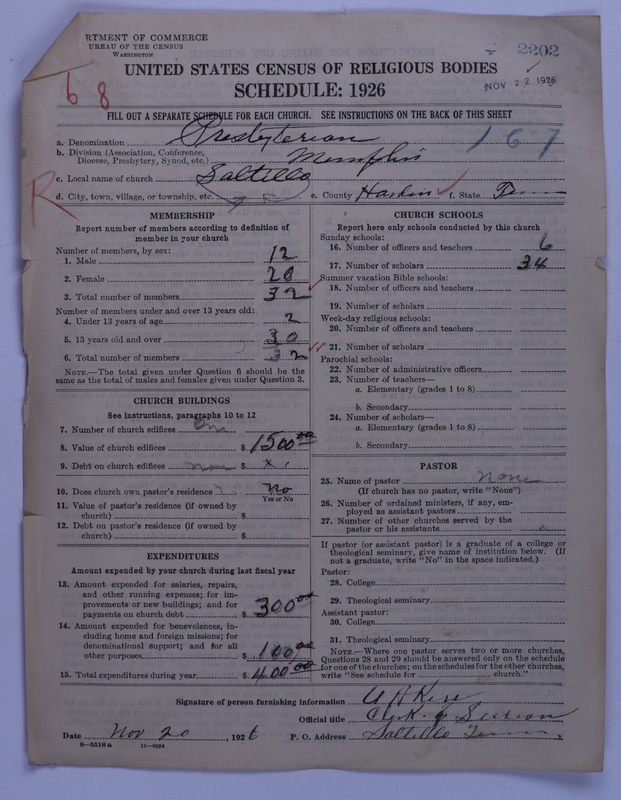 RTMENT OF COMMERCE
UREAU OF THE CENSUS
WASHINGTON
2202
NOV 22 1926
68
UNITED STATES CENSUS OF RELIGIOUS BODIES
SCHEDULE: 1926
FILL OUT A SEPARATE SCHEDULE FOR EACH CHURCH. SEE INSTRUCTIONS ON THE BACK OF THIS SHEET
167
a. Denomination Presbyterian
b. Division (Association, Conference,
Diocese, Presbytery, Synod, etc.) Memphis
c. Local name of church Saltillo
R
d. City, town, village, or township, etc. e. County Hardin f. State Tenn
MEMBERSHIP
Report number of members according to definition of
member in your church
Number of members, by sex:
1. Male 12
2. Female 20
3. Total number of members 32
Number of members under and over 13 years old:
4. Under 13 years of age 2
5. 13 years old and over 30
6. Total number of members 32
NOTE.—The total given under Question 6 should be
same as the total of males and females given under Question 3.
CHURCH BUILDINGS
See instructions, paragraphs 10 to 12
7. Number of church edifices One
8. Value of church edifices $ 1500 00
9. Debt on church edifices None $ x
10. Does church own pastor's residence? No
Yes or No
11. Value of pastor's residence (if owned by
church) $
12. Debt on pastor's residence (if owned by
church) $
EXPENDITURES
Amount expended by your church during last fiscal year
13. Amount expended for salaries, repairs,
and other running expenses; for im-
provements or new buildings; and for
payments on church debt $ 300 00
14. Amount expended for benevolences, in-
cluding home and foreign missions; for
denominational support; and for all
other purposes $ 100 00
15. Total expenditures during year $ 400 00
CHURCH SCHOOLS
Report here only schools conducted by this church
Sunday schools:
16. Number of officers and teachers 6
17. Number of scholars 34
Summer vacation Bible schools:
18. Number of officers and teachers
19. Number of scholars
Week-day religious schools:
20. Number of officers and teachers
21. Number of scholars
Parochial schools:
22. Number of administrative officers
23. Number of teachers—
a. Elementary (grades 1 to 8)
b. Secondary
24. Number of scholars—
a. Elementary (grades 1 to 8)
b. Secondary
PASTOR
25. Name of pastor None
(If church has no pastor, write "None")
26. Number of ordained ministers, if any, em-
ployed as assistant pastors
27. Number of other churches served by the
pastor or his assistants
If pastor (or assistant pastor) is a graduate of a college or
theological seminary, give name of institution below. (If
not a graduate, write "No" in the space indicated.)
Pastor:
28. College
29. Theological seminary
Assistant pastor:
30. College
31. Theological seminary
NOTE.—Where one pastor serves two or more churches,
Questions 28 and 29 should be answered only on the schedule
for one of the churches; on the schedules for the other churches,
write "See schedule for church."
Signature of person furnishing information
Official title Clerk of Session
Date Nov 20, 1926 P. O. Address Saltillo Tenn.
8—5518a 11—9034